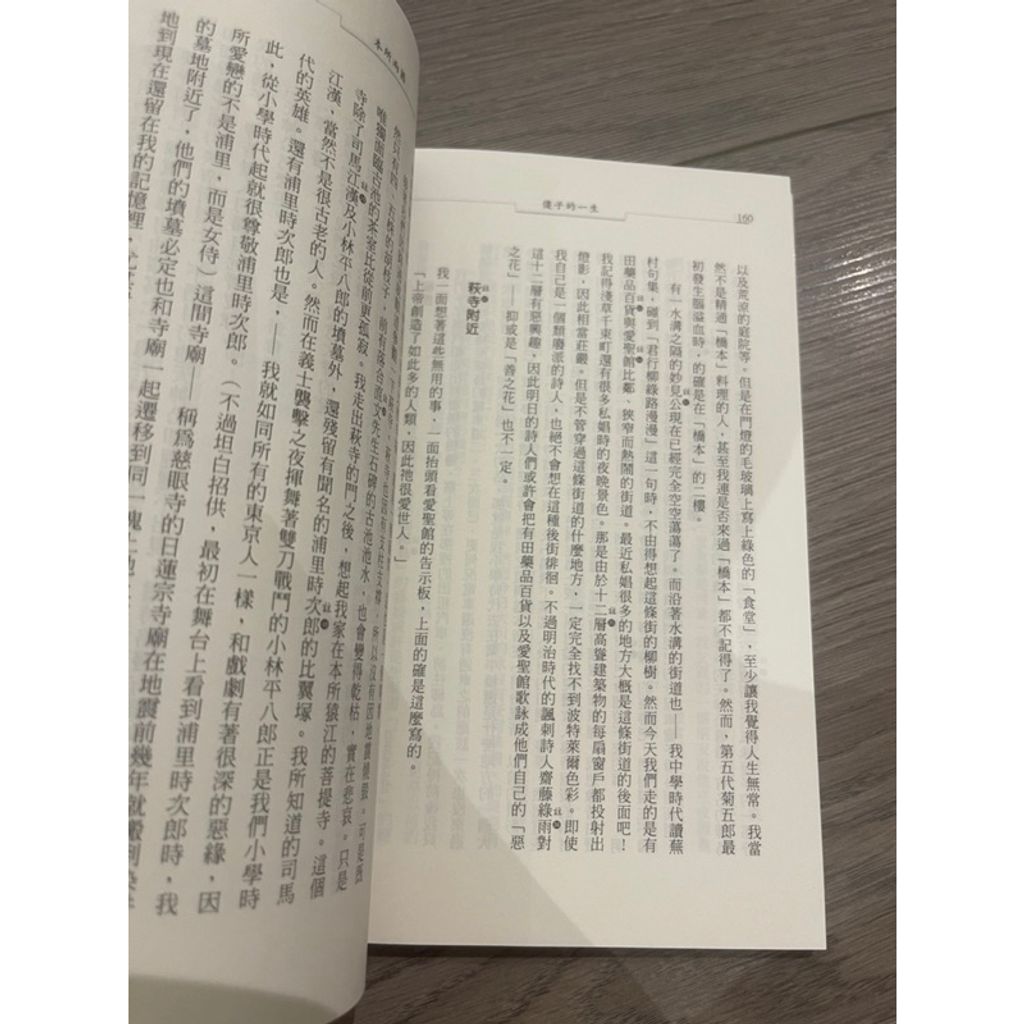 160
傻子的一生
以及荒涼的庭院等。但是在門燈的毛玻璃上寫上綠色的「食堂」，至少讓我覺得人生無常。我當
然不是精通「橋本」料理的人，甚至我連是否來過「橋本」都不記得了。然而，第五代菊五郎最
初發生腦溢血時，的確是在「橋本」的二樓。
有一水溝之隔的妙見公現在已經完全空空蕩蕩了。而沿著水溝的街道也——我中學時代讀蕪
村句集，碰到「君行柳綠路漫漫」這一句時，不由得想起這條街的柳樹。然而今天我們走的是有
田藥品百貨與愛聖館比鄰、狹窄而熱鬧的街道。最近私娼很多的地方大概是這條街道的後面吧！
我記得淺草千束町還有很多私娼時的夜晚景色。那是由於十二層高聳建築物的每扇窗戶都投射出
燈影，因此相當莊嚴。但是不管穿過這條街道的什麼地方，一定完全找不到波特萊爾色彩。即使
我自己是一個頹廢派的詩人，也絕不會想在這種後街徘徊。不過明治時代的諷刺詩人齋藤綠雨對
這十二層有惡興趣，因此明日的詩人們或許會把有田藥品百貨以及愛聖館歌詠成他們自己的「惡
之花」——抑或是「善之花」也不一定。
萩寺附近
我一面想著這些無用的事，一面抬頭看愛聖館的告示板，上面的確是這麼寫的。
「上帝創造了如此多的人類，因此祂很愛世人。」
本所兩國
唯獨面臨古池的茶室比從前更孤寂。我走出萩寺的門之後，想起我家在本所猿江的菩提寺。這個
寺除了司馬江漢及小林平八郎的墳墓外，還殘留有聞名的浦里時次郎的比翼塚。我所知道的司馬
江漢，當然不是很古老的人。然而在義士襲擊之夜揮舞著雙刀戰鬥的小林平八郎正是我們小學時
代的英雄。還有浦里時次郎也是，——我就如同所有的東京人一樣，和戲劇有著很深的惡緣，因
此，從小學時代起就很尊敬浦里時次郎。（不過坦白招供，最初在舞台上看到浦里時次郎時，我
所愛戀的不是浦里，而是女侍）這間寺廟——稱為慈眼寺的日蓮宗寺廟在地震前幾年就搬到
的墓地附近了，他們的墳墓必定也和寺廟一起遷移到同一塊土地
地到現在還留在我的記憶裡